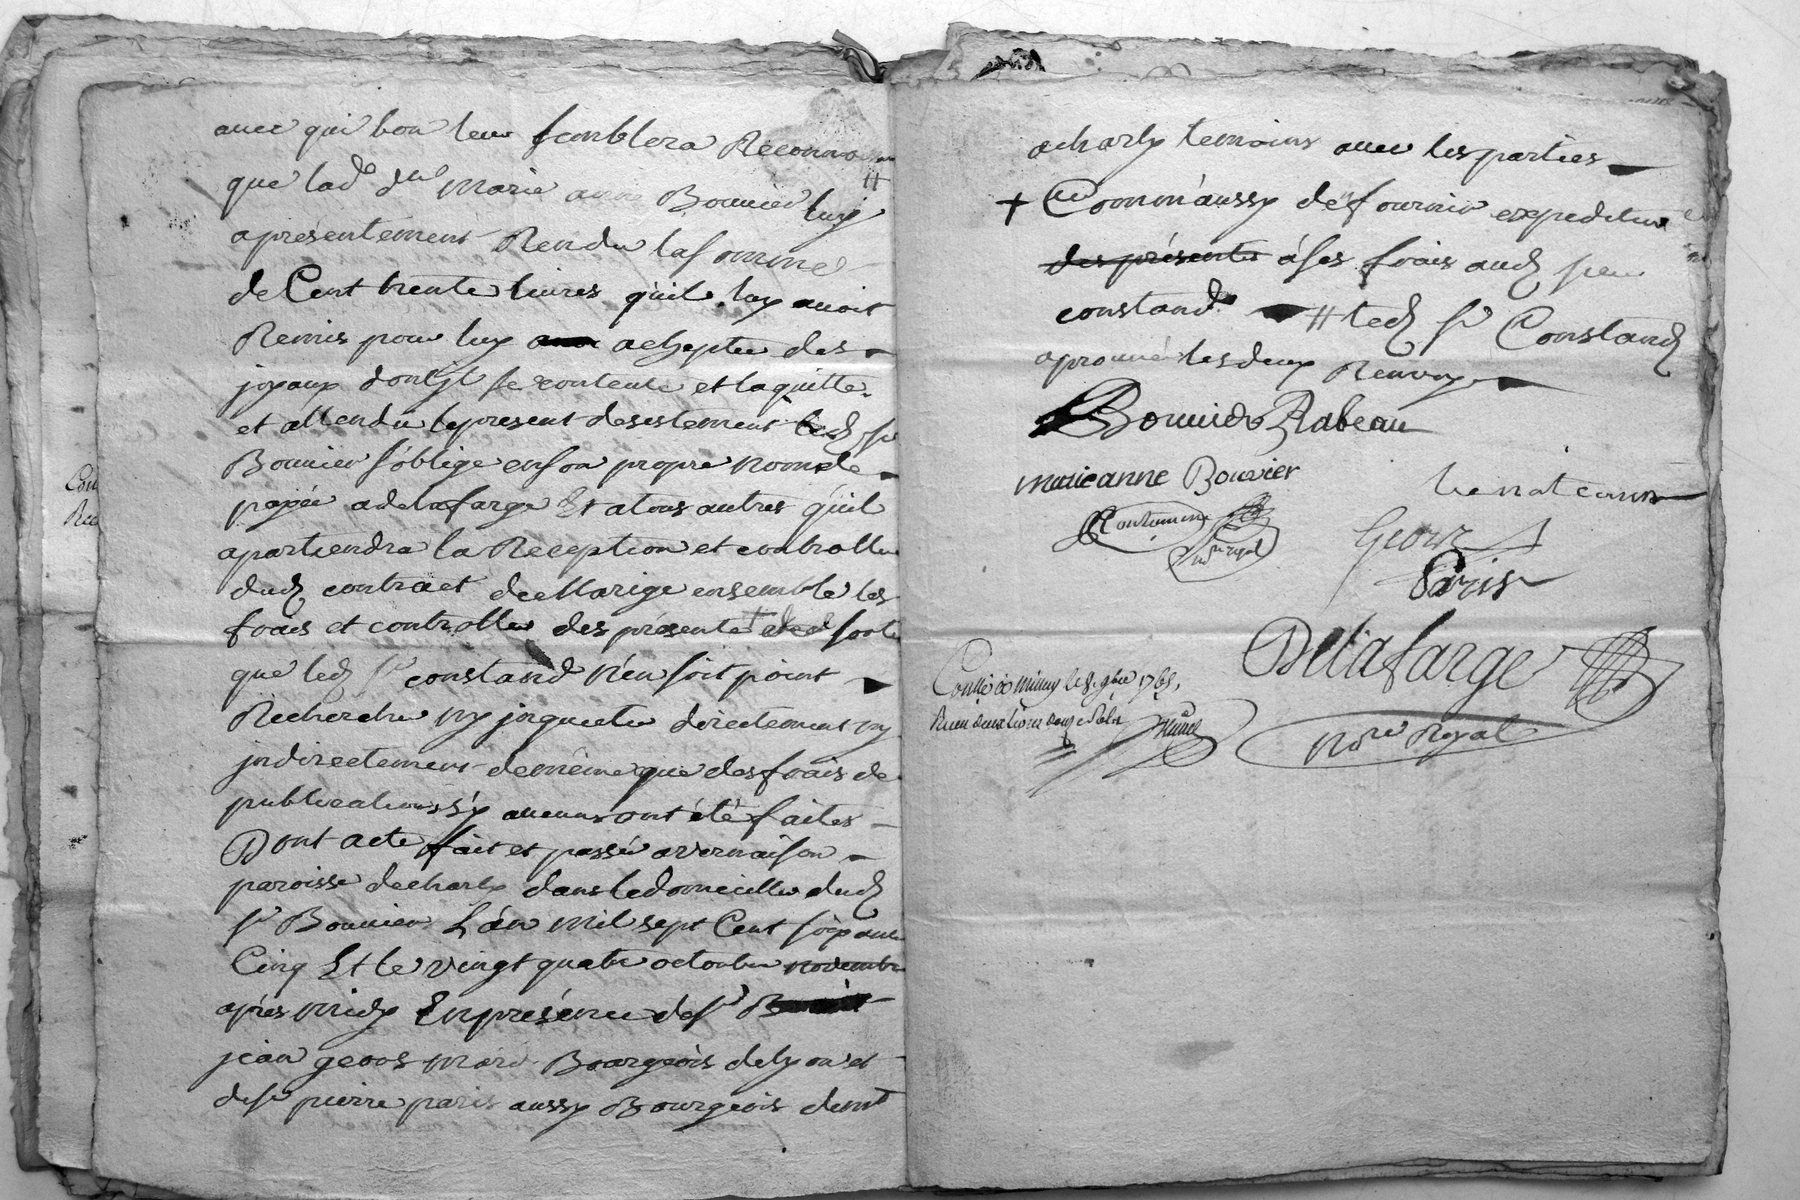 avec qui bon leur semblera Reconnoissant
que lad.e d.lle Marie anne Bouvier luy //
apresentement Rendu la somme
de Cent trente livres quil luy avoit
Remis pour luy achepter des
joyaux dont jl se contente et la quitte
et attendu le present desistement led. s.r
Bouvier s'oblige en son propre nom de
payer a delafarge Et a tous autres quil
apartiendra la Reception et controlle
dud. contract de Marige ensemble les
frais et controlle des présente + sorte
que led. s.r constand n'en soit point
Recherché ny jnquieté directement ny
jndirectement de même que des frais de
publications sy aucuns ont été faites
Dont acte fait et passé a vernaison
paroisse de charly dans le domicille dud.
s.r Bouvier L'an Mil sept Cent soixante
Cinq Et le vingt quatre octobre novembre
après midy En présence de s.r
jean geors Bourgeois de lyon et
de s.r pierre paris aussy Bourgeois dem.t
Con
Rec
acharly temoins avec les parties
+ Comm'aussy de fournir expedition
des présente à ses frais aud. sieur
constand // led. s.r Constand
aprouvé les deux Renvoy
Bouvier Rabeau
marieanne Bouvier
geors
Paris
Delafarge
no.re Royal
Con.llé à Millery le 8. 9bre 1765,
Reçu deux livres douze sols